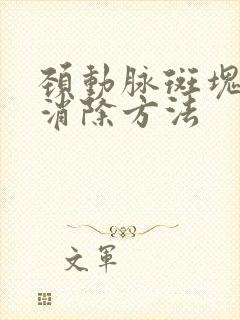 頚動脉斑塊
消除方法
文軍